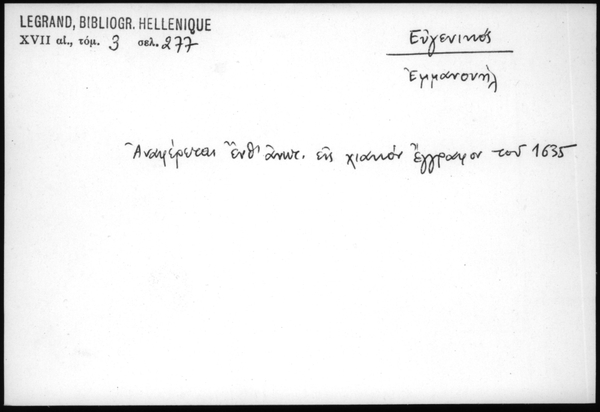 LEGRAND, BIBLIOGR. HELLENIQUE
XVII αἰ., τόμ. 3 σελ. 277
Εὐγενικός
Ἐμμανουήλ
Ἀναφέρεται ἔνθ' ἀνωτ. εἰς χιακόν ἔγγραφον τοῦ 1635